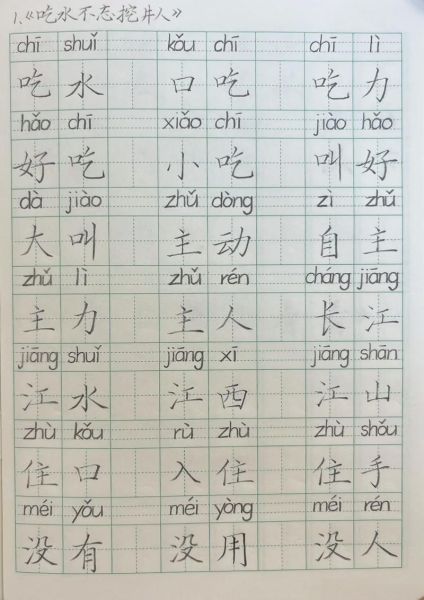 1.《吃水不忘挖井人》
chī shuǐ kǒu chī chī lì
吃水 口吃 吃力
hǎo chī xiǎo chī jiào hǎo
好吃 小吃 叫好
dà jiào zhǔ dòng zì zhǔ
大叫 主动 自主
zhǔ lì zhǔ rén cháng jiāng
主力 主人 长江
jiāng shuǐ jiāng xī jiāng shān
江水 江西 江山
zhù kǒu rù zhù zhù shǒu
住口 入住 住手
méi yǒu méi yòng méi rén
没有 没用 没人